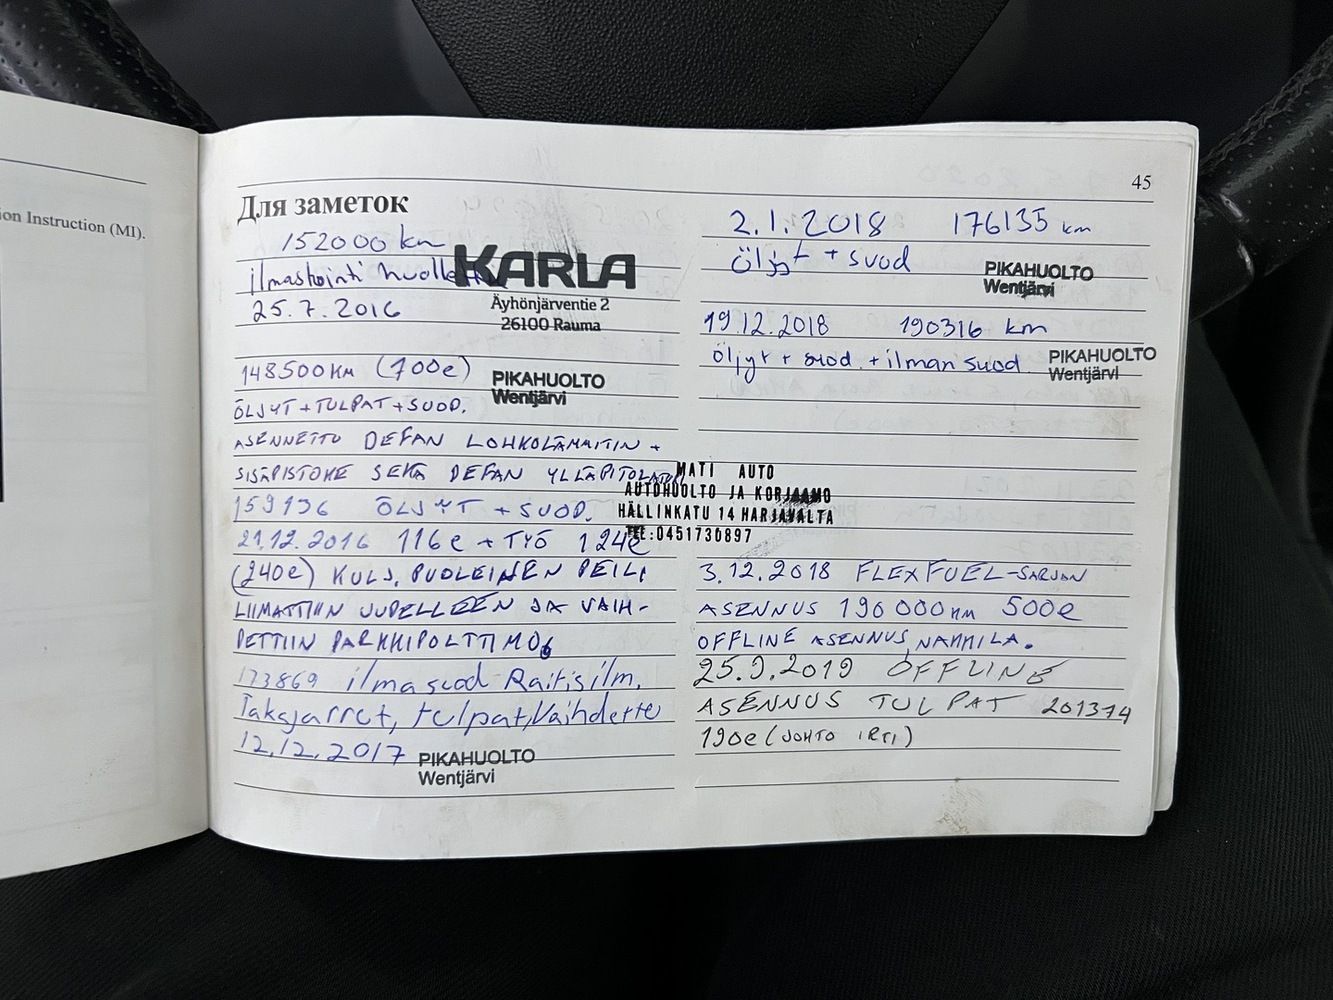 ion Instruction (MI).
45
Для заметок
152000 km
ilmastointi huollettu
25.7.2016
KARLA
Äyhönjärventie 2
26100 Rauma
148500KM (700e)
PIKAHUOLTO
Wentjärvi
ÖLJYT+TULPAT+SUOD.
ASENNETTU DEFAN LOHKOLÄMMITIN +
SISÄPISTOKE SEKÄ DEFAN YLLÄPITOLATURI
159136 ÖLJYT + SUOD.
21.12.2016 116e + TYÖ 124e
(240e) KULJ. PUOLEINEN PEILI
LIIMATTIIN UUDELLEEN JA VAIH-
DETTIIN PARKKIPOLTTIMO
173869 ilmasuod Raitisilm.
Takajarrut, tulpat, Vaihdettu
12.12.2017
PIKAHUOLTO
Wentjärvi
2.1.2018 176135 km
öljyt + suod
PIKAHUOLTO
Wentjärvi
19.12.2018 190316 km
öljyt + suod. + ilmansuod.
PIKAHUOLTO
Wentjärvi
MATI AUTO
AUTOHUOLTO JA KORJAAMO
HÄLLINKATU 14 HARJAVALTA
TEL:0451730897
3.12.2018 FLEXFUEL-SARJAN
ASENNUS 190000KM 500e
OFFLINE ASENNUS, NAKKILA.
25.9.2019 OFFLINE
ASENNUS TULPAT 201374
190e (JOHTO IRTI)